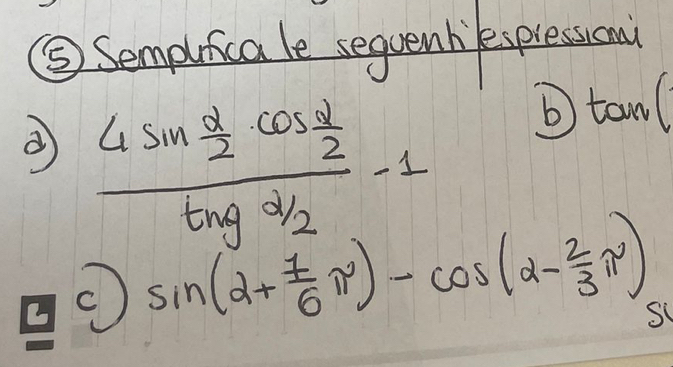 ⑤ Semplifica le seguenti espressioni
a) 4 sin α/2 · cos α/2 / tng α/2 - 1
b) tan(
c) sin(α + 7/6 π) - cos(α - 2/3 π)